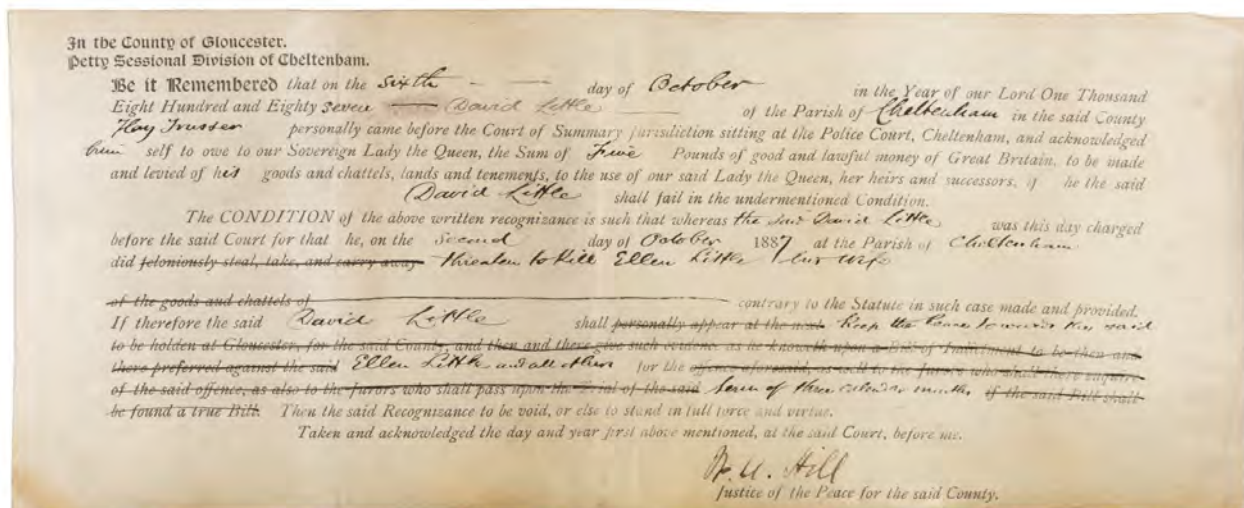 In the County of Gloucester.
Petty Sessional Division of Cheltenham.
Be it Remembered that on the Sixth day of October in the Year of our Lord One Thousand
Eight Hundred and Eighty seven David Little of the Parish of Cheltenham in the said County
Hay Trusser personally came before the Court of Summary Jurisdiction sitting at the Police Court, Cheltenham, and acknowledged
him self to owe to our Sovereign Lady the Queen, the Sum of Five Pounds of good and lawful money of Great Britain, to be made
and levied of his goods and chattels, lands and tenements, to the use of our said Lady the Queen, her heirs and successors, if he the said
David Little shall fail in the undermentioned Condition.
The CONDITION of the above written recognizance is such that whereas the said David Little was this day charged
before the said Court for that he, on the second day of October 1887 at the Parish of Cheltenham
did feloniously steal, take, and carry away threaten to kill Ellen Little his wife
of the goods and chattels of contrary to the Statute in such case made and provided.
If therefore the said David Little shall personally appear at the next Keep the Peace towards the said
to be holden at Gloucester, for the said County, and then and there give such evidence as he knoweth upon a Bill of Indictment to be then and
there preferred against the said Ellen Little and all others for the offence aforesaid, as well to the Jurors who shall there enquire
of the said offence, as also to the Jurors who shall pass upon the Trial of the said term of three calendar months if the said Bill shall
be found a true Bill. Then the said Recognizance to be void, or else to stand in full force and virtue.
Taken and acknowledged the day and year first above mentioned, at the said Court, before me.
Hill
Justice of the Peace for the said County.